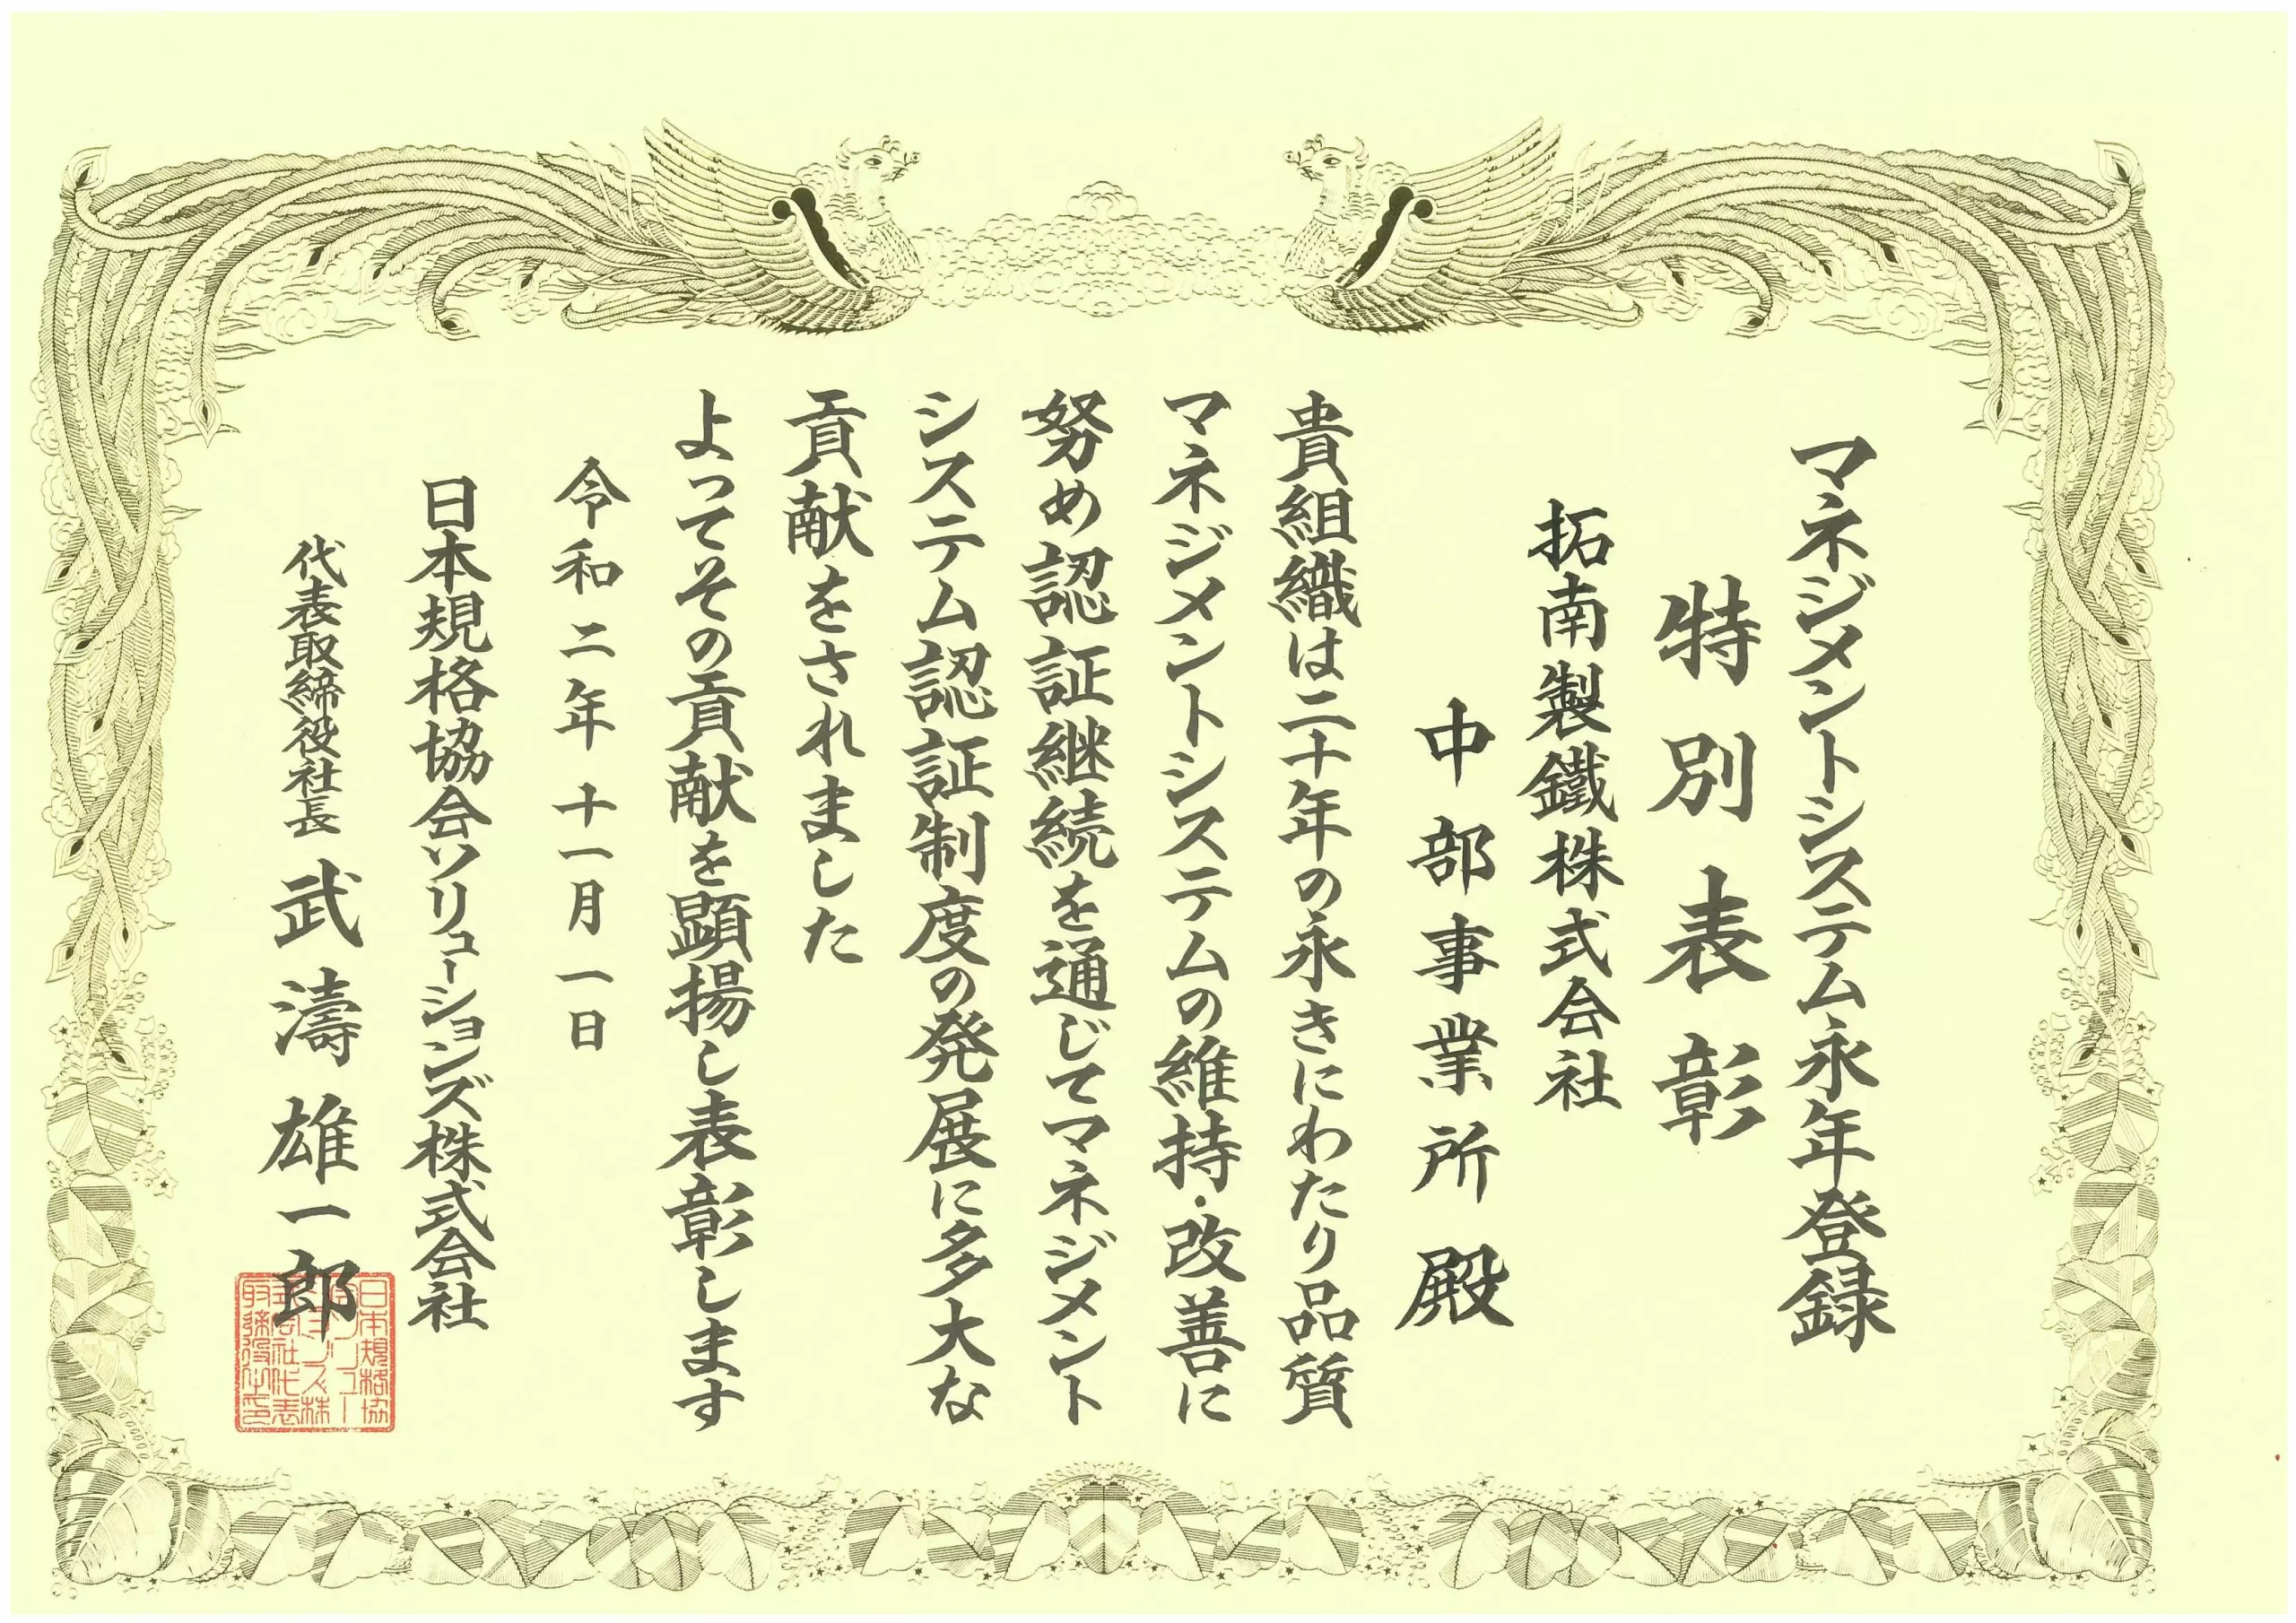 マネジメントシステム永年登録
特別表彰
拓南製鐵株式会社
中部事業所 殿
貴組織は二十年の永きにわたり品質
マネジメントシステムの維持・改善に
努め認証継続を通じてマネジメント
システム認証制度の発展に多大な
貢献をされました
よってその貢献を顕揚し表彰します
令和二年十一月一日
日本規格協会ソリューションズ株式会社
代表取締役社長 武濤雄一郎
日本規格協
会ソリュー
ションズ株
式会社代表
取締役之印